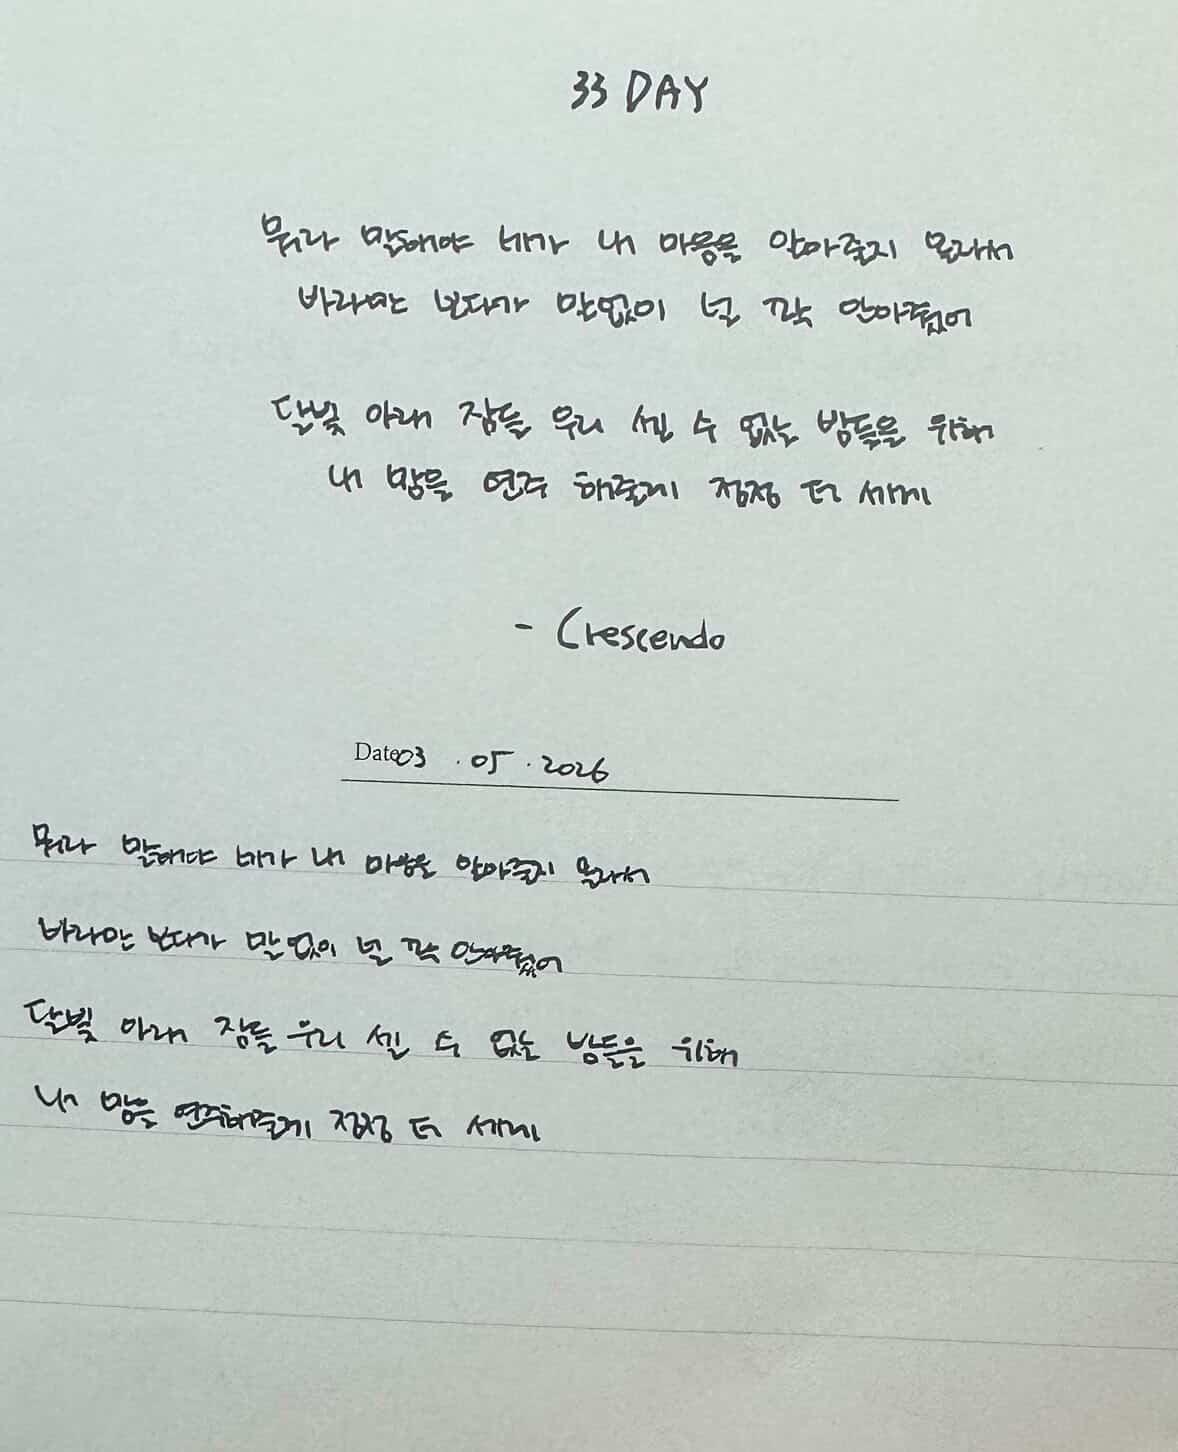 33 DAY
뭐라 말해야 네가 내 마음을 알아줄지 몰라서
바라만 보다가 말없이 널 꽉 안아줬어
달빛 아래 잠들 우리 셀 수 없는 밤들을 위해
내 맘을 연주 해줄게 점점 더 세게
- Crescendo
Date 03 . 05 . 2026
뭐라 말해야 네가 내 마음을 알아줄지 몰라서
바라만 보다가 말없이 널 꽉 안아줬어
달빛 아래 잠들 우리 셀 수 없는 밤들을 위해
내 맘을 연주해줄게 점점 더 세게